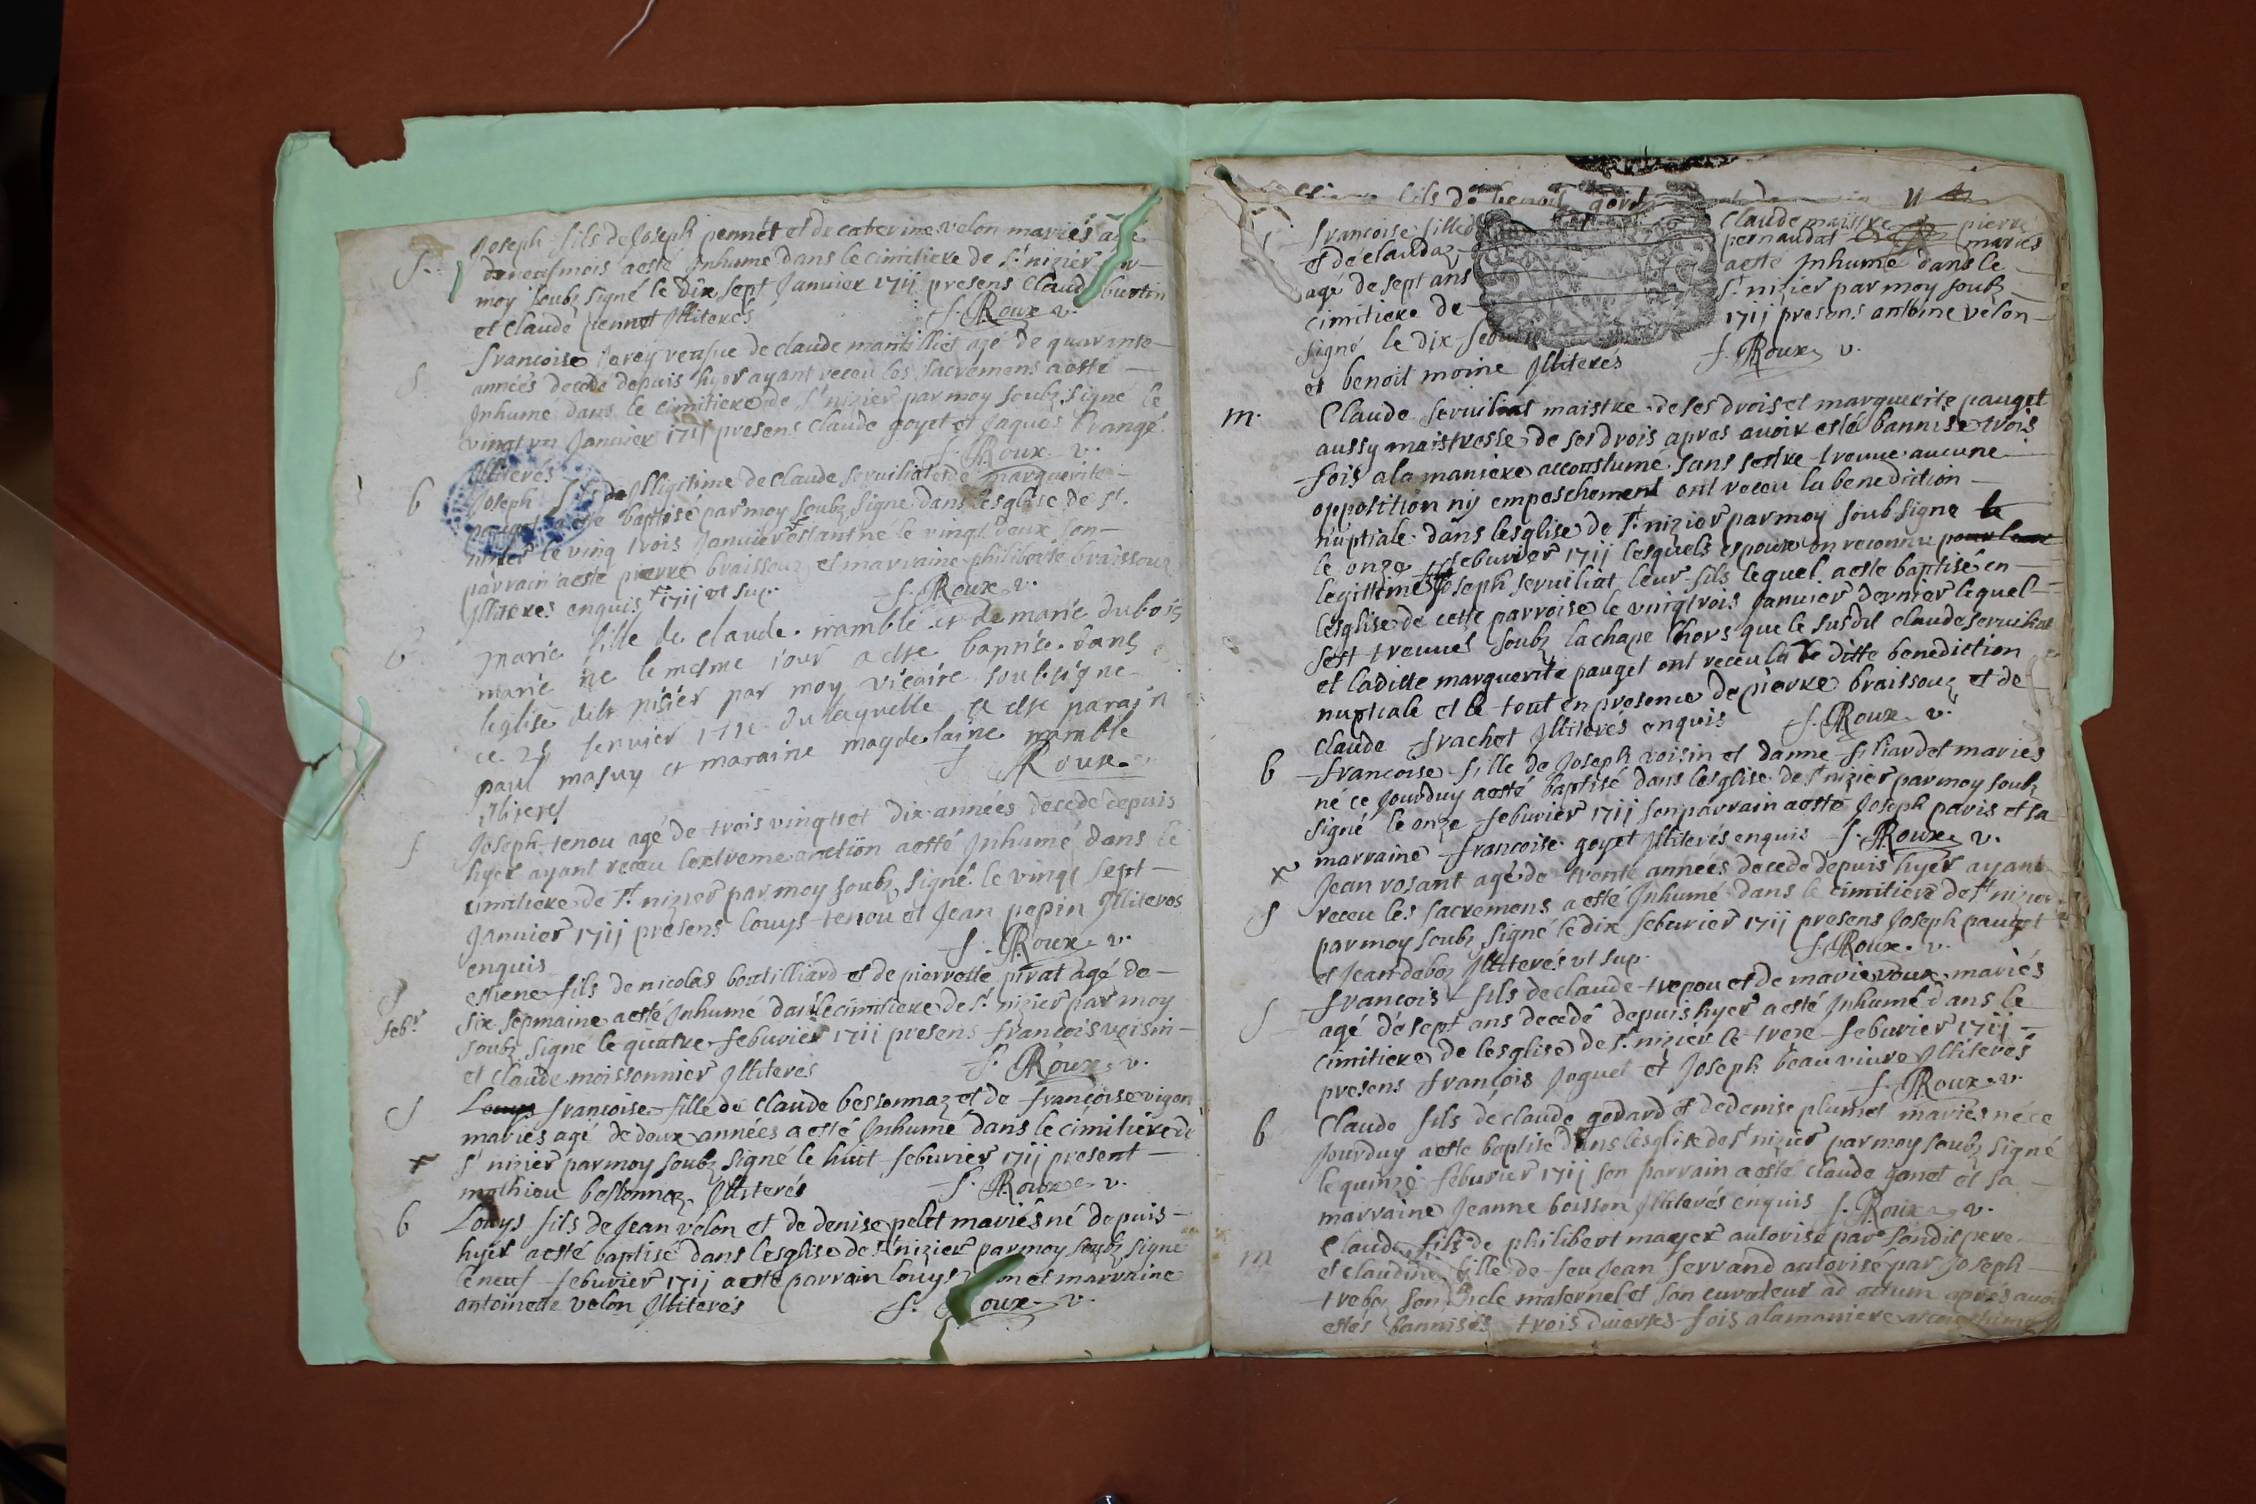 Joseph fils de Joseph pennet et de caterine velon mariés agé
de neuf mois a esté Inhumé dans le cimitiere de St nizier par
S
moy soubz signé le dix sept Janvier 1711 presens Claude burtin
et Claude pennet Illiterés f. Roux v.
francoise Jorey veufue de claude mantilliet agé de quarante
S
années decedé depuis hyer ayant receu les sacremens a esté
Inhumé dans le cimitiere de St nizier par moy soubz signé le
vingt un Janvier 1711 presens claude goyet et Jaques brangé
Illiterés f. Roux v.
b
Joseph fils Illegitime de claude seruiliat et de marguerite
pauget a esté baptisé par moy soubz signé dans lesglise de St
nizier le ving trois Janvier estant né le vingt deux son
parrain a esté pierre braissouz et marraine philiberte braissouz
Illiteres enquis 1711 vt sup. f. Roux v.
b
marie fille de claude ramblé et de marie dubois
marié né le mesme jour a esté baptisée dans
leglise de st nisier par moy vicaire soubsigné
ce 25 1711 de laquelle a esté parain
paul masuy et maraine magdelaine ramblé
Illiteres f Roux
S
Joseph tenou agé de trois vingts et dix années decede depuis
hyer ayant receu lextreme onction a esté Inhumé dans le
cimitiere de St nizier par moy soubz signé le vingt sept
Janvier 1711 presens louys tenou et Jean pepin Illiteros
enquis f. Roux v.
S
estiene fils de nicolas boutilliard et de pierrette pirat agé de
febr
six sepmaine a esté Inhumé dans le cimitiere de St nizier par moy
soubz signé le quatre feburier 1711 presens francois voisin
et claude moissonnier Illiterés f. Roux v.
S
Louys francoise fille de claude bessonnaz et de francoise vigon
mariés agé de deux années a esté Inhumé dans le cimitiere de
St nizier par moy soubz signé le huit feburier 1711 present
mathieu bessonnaz Illiterés f. Roux v.
b
Louys fils de Jean velon et de denise pelet mariés né depuis
hyer a esté baptisé dans lesglise de St nizier par moy soubz signé
le neuf feburier 1711 a esté parrain louys et marraine
antoinette velon Illiterés f. Roux v.
fils de benoit
francoise fille de claude maistre pierre
et de claudaz pernaudat mariés
agé de sept ans a esté Inhumé dans le
cimitiere de St nizier par moy soubz
signé le dix feburier 1711 presens antoine velon
et benoit moine Illiterés f. Roux v.
m.
Claude seruiliat maistre de ses drois et marguerite pauget
aussy maistresse de ses drois apres avoir esté bannise trois
fois a la maniere accoustumé sans sestre treuué aucune
opposition ny empeschement ont receu la benediction
nuptiale dans lesglise de St nizier par moy soub signé le
le onze feburier 1711 lesquels espoux on reconnu pour leur
legittime Joseph seruiliat leur fils lequel a esté baptisé en
lesglise de cette parroise le vingt trois Janvier dernier lequel
sest treuué soubz la chape lhors que le susdit claude seruiliat
et laditte marguerite pauget ont receu la ditte benediction
nuptiale et le tout en presence de pierre braissouz et de
claude frachet Illiterés enquis f. Roux v.
b
francoise fille de Joseph voisin et danne filiardet mariés
né ce Jourduy a esté baptisé dans lesglise de St nizier par moy soubz
signé le onze feburier 1711 son parrain a esté Joseph paris et sa
marraine francoise goyet Illiterés enquis f. Roux v.
x
Jean rosant agé de trente années decede depuis hyer ayant
S
receu les sacremens a esté Inhumé dans le cimitiere de St nizier
par moy soubz signé le dix feburier 1711 presens Joseph pauget
et Jean deboz Illiterés vt sup. f. Roux v.
S
francois fils de claude trepou et de marie roux mariés
agé de sept ans decedé depuis hyer a esté Inhumé dans le
cimitiere de lesglise de St nizier le treze feburier 1711
presens francois Joguet et Joseph beauviure Illiterés
f. Roux v.
b
Claude fils de claude godard et de denise plumet mariés né ce
Jourduy a esté baptisé dans lesglise de St nizier par moy soubz signé
le quinze feburier 1711 son parrain a esté claude ganet et sa
marraine Jeanne boisson Illiterés enquis f. Roux v.
m
Claude fils de philibert mayer autorisé par sondit pere
et claudine fille de feu Jean ferrand autorisé par Joseph
treboz son oncle maternel et son curateur ad actum apres avoir
estés bannisés trois diuerses fois a la maniere accoustumé